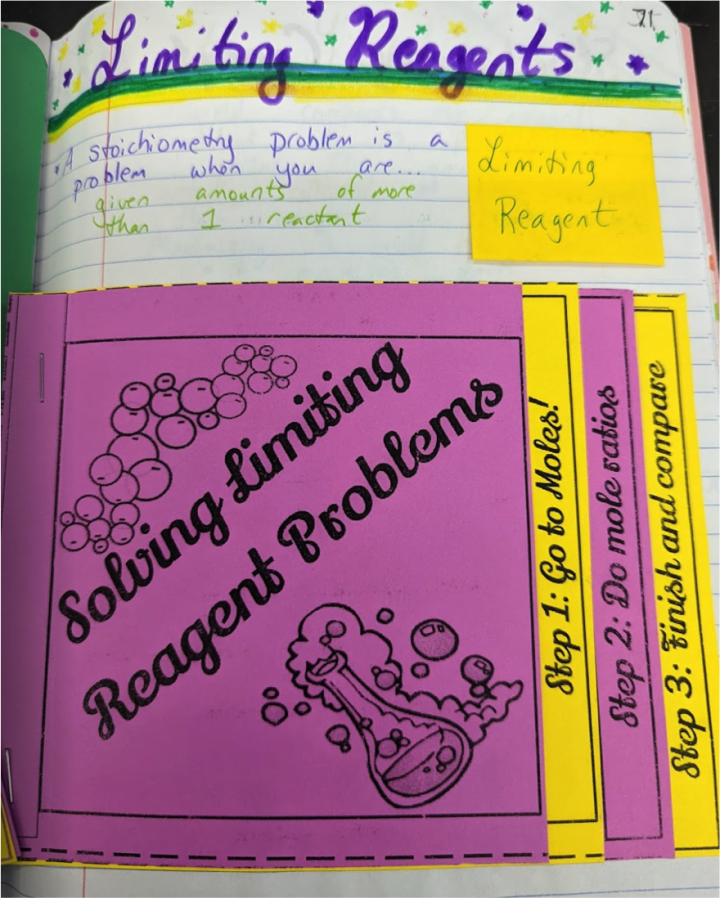 71
Limiting Reagents
• A stoichiometry problem is a
problem when you are...
given amounts of more
than 1 reactant
Limiting
Reagent
Solving Limiting
Reagent Problems
Step 1: Go to Moles!
Step 2: Do mole ratios
Step 3: Finish and compare